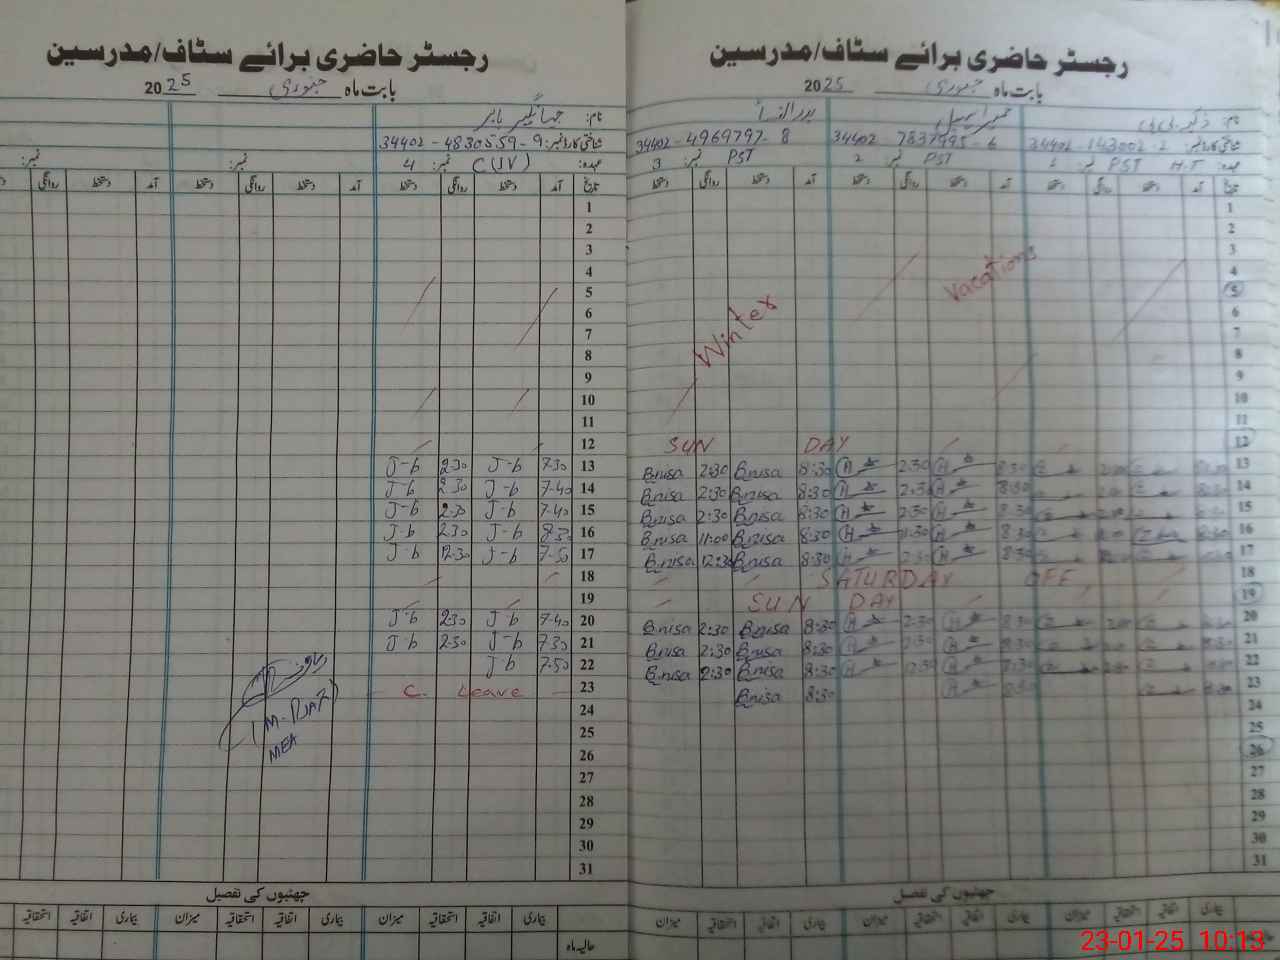 رجسٹر حاضری برائے سٹاف/مدرسین
بابت ماہ جنوری 2025
نام: ذکیہ بی بی
بدر النساء
شناختی کارڈ نمبر:
34402 7837995-6
34402-4969797-8
عہدہ: PST H.T نمبر: 1
PST نمبر: 2
PST نمبر: 3
تاریخ آمد دستخط روانگی دستخط آمد دستخط روانگی دستخط آمد دستخط روانگی دستخط
1
2
3
4
5
6
7
8
9
10
11
Winter Vacations
12 SUN DAY
13 Bnisa 2:30 Bnisa 8:30 2:30 8:30
14 Bnisa 2:30 Bnisa 8:30 2:30 8:30
15 Bnisa 2:30 Bnisa 8:30 2:30 8:30
16 Bnisa 11:00 Bnisa 8:30 8:30
17 Bnisa 12:30 Bnisa 8:30 8:30
18 SATURDAY OFF
19 SUN DAY
20 Bnisa 2:30 Bnisa 8:30 2:30 8:30
21 Bnisa 2:30 Bnisa 8:30 2:30 8:30
22 Bnisa 2:30 Bnisa 8:30
23 Bnisa 8:30
24
25
26
27
28
29
30
31
چھٹیوں کی تفصیل
بیماری اتفاقیہ استحقاقیہ میزان بیماری اتفاقیہ استحقاقیہ میزان بیماری اتفاقیہ استحقاقیہ میزان
رجسٹر حاضری برائے سٹاف/مدرسین
بابت ماہ جنوری 2025
نام: جہانگیر بابر
شناختی کارڈ نمبر: 34402-4830559-9
عہدہ: C(JV) نمبر: 4
نمبر:
نمبر:
تاریخ آمد دستخط روانگی دستخط آمد دستخط روانگی دستخط آمد دستخط روانگی
1
2
3
4
5
6
7
8
9
10
11
12
13 J-b 2:30 J-b 7:30
14 J-b 2:30 J-b 7-40
15 J-b 2:30 J-b 7-40
16 J-b 2:30 J-b
17 J-b 12:30 J-b 7-50
18
19
20 J-b 2:30 J-b 7-40
21 J-b 2:30 J-b 7:30
22 J-b 7:50
23 C. Leave
24
25
26
27
28
29
30
31
MEA
چھٹیوں کی تفصیل
بیماری اتفاقیہ استحقاقیہ میزان بیماری اتفاقیہ استحقاقیہ میزان بیماری اتفاقیہ استحقاقیہ
حالیہ ماہ
23-01-25 10:13